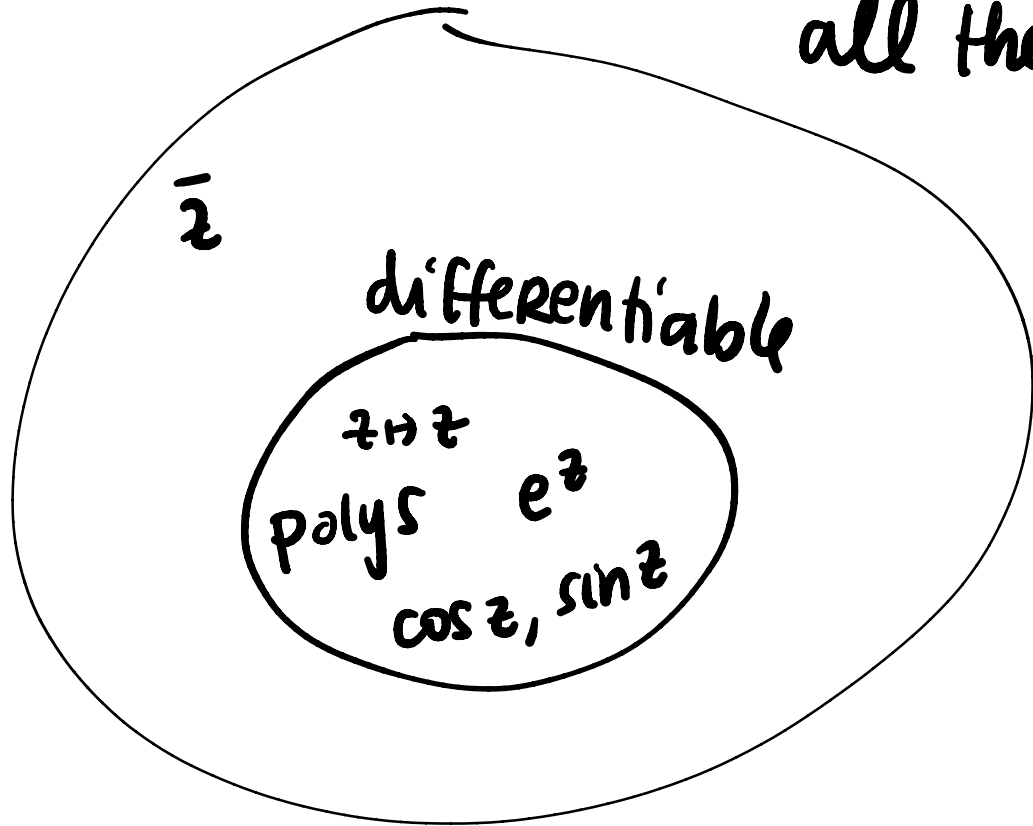 all the
z̄
differentiable
z ↦ z
polys e^z
cos z, sin z